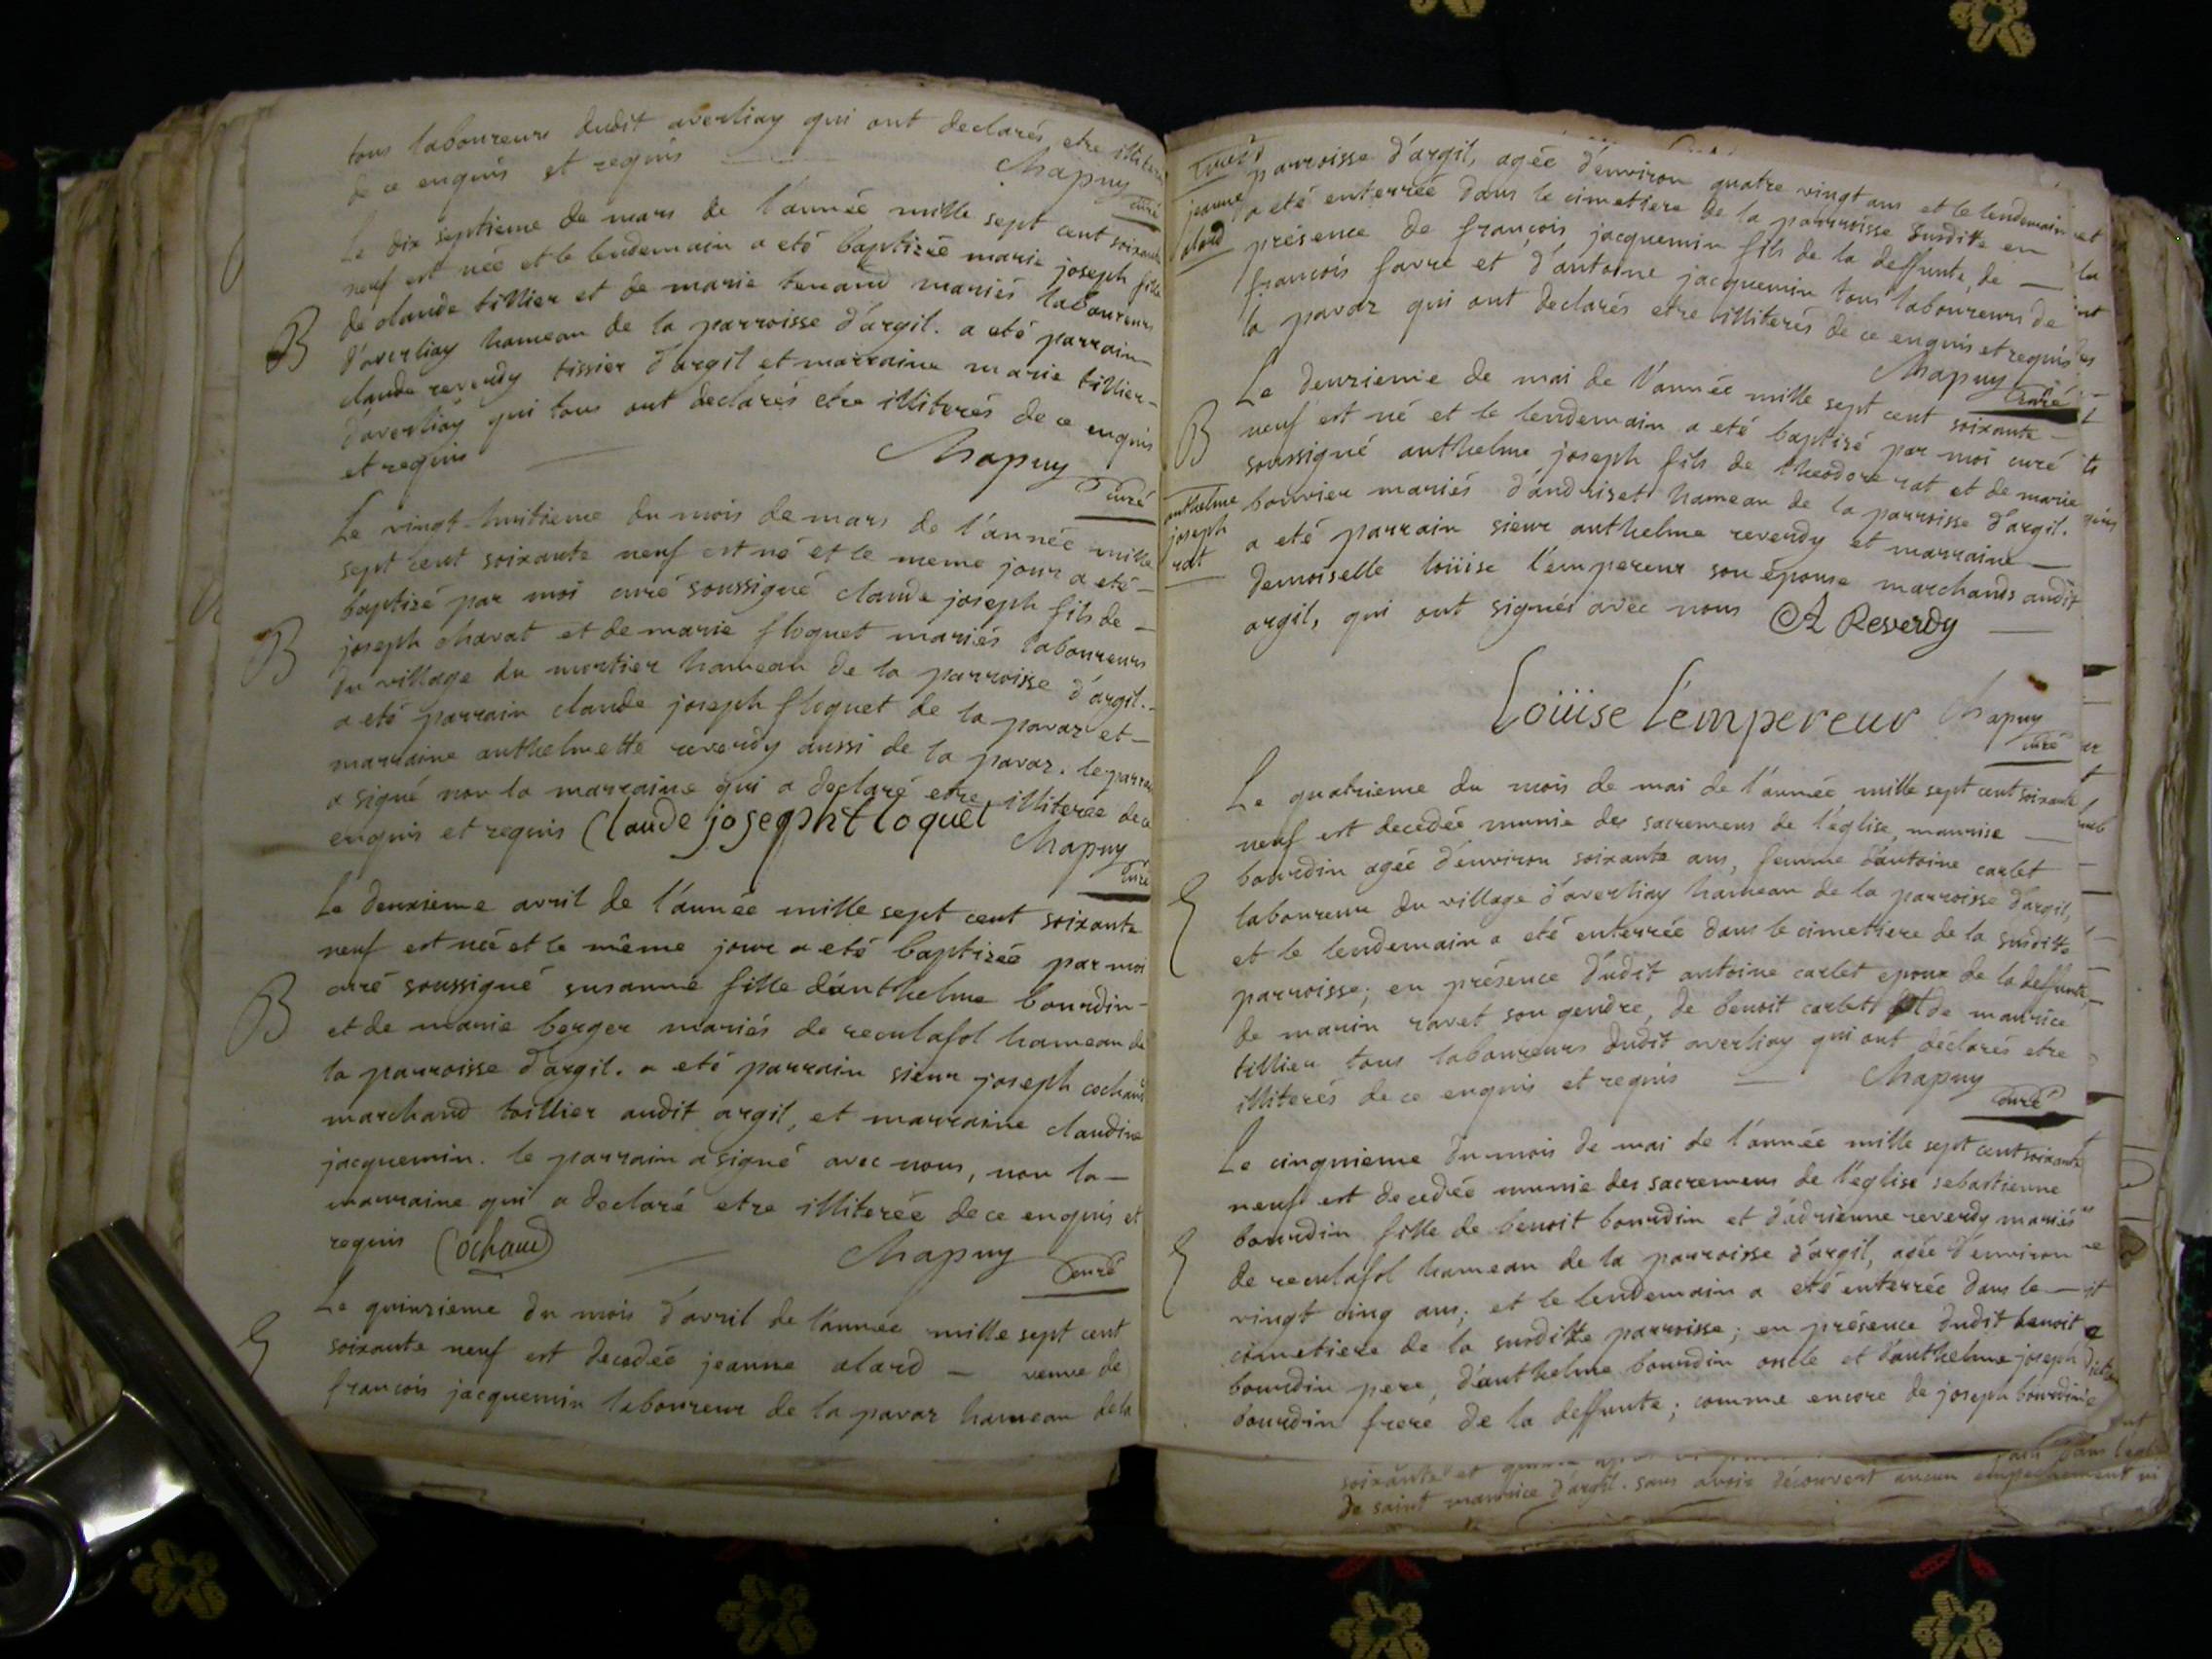 tous laboureurs dudit averliay qui ont declarés etre illiterés
de ce enquis et requis
Chapuy curé
Le dix septieme de mars de l'année mille sept cent soixante
neuf est née et le lendemain a eté baptizée marie joseph fille
de claude tillier et de marie tenand mariés laboureurs
B
d'averliay hameau de la parroisse d'argil. a eté parrain
claude reverdy tissier d'argil et marraine marie tillier
d'averliay qui tous ont declarés etre illiterés de ce enquis
et requis
Chapuy
curé
Le vingt-huitieme du mois de mars de l'année mille
sept cent soixante neuf est né et le meme jour a eté
baptizé par moi curé soussigné claude joseph fils de
joseph charat et de marie floquet mariés laboureurs
B
du village du mortier hameau de la parroisse d'argil.
a eté parrain claude joseph floquet de la pavaz et
marraine anthelmette reverdy aussi de la pavaz. le parrain
a signé non la marraine qui a declaré etre illiterée de ce
enquis et requis Claude joseph floquet
Chapuy
curé
Le deuxieme avril de l'année mille sept cent soixante
neuf est née et le même jour a eté baptizée par moi
curé soussigné susanne fille d'anthelme bourdin
B
et de marie berger mariés de reculafol hameau de
la parroisse d'argil. a eté parrain sieur joseph cochaud
marchand toillier audit argil, et marraine claudine
jacquemin. le parrain a signé avec nous, non la
marraine qui a declaré etre illiterée de ce enquis et
requis Cochaud
Chapuy
curé
Le quinzieme du mois d'avril de l'année mille sept cent
soixante neuf est decedée jeanne alard veuve de
françois jacquemin laboureur de la pavaz hameau de la
parroisse d'argil, agée d'environ quatre vingt ans et le lendemain
jeanne
alard
a eté enterrée dans le cimetiere de la parroisse susditte en
présence de françois jacquemin fils de la deffunte, de
françois favre et d'antoine jacquemin tous laboureurs de
la pavaz qui ont declarés etre illiterés de ce enquis et requis
Chapuy
curé
Le deuxieme de mai de l'année mille sept cent soixante
B
neuf est né et le lendemain a eté baptizé par moi curé
soussigné anthelme joseph fils de theodore rat et de marie
anthelme
joseph
rat
bouvier mariés d'andriset hameau de la parroisse d'argil.
a eté parrain sieur anthelme reverdy et marraine
demoiselle loüise l'empereur son épouse marchands audit
argil, qui ont signés avec nous A Reverdy
Loüise l'empereur Chapuy
curé
Le quatrieme du mois de mai de l'année mille sept cent soixante
neuf est decedée munie des sacremens de l'église, maurise
bourdin agée d'environ soixante ans, femme d'antoine carlet
laboureur du village d'averliay hameau de la parroisse d'argil,
et le lendemain a eté enterrée dans le cimetiere de la susditte
parroisse; en présence dudit antoine carlet epoux de la deffunte,
de marin ravet son gendre, de benoit carlet et de maurice
tillier tous laboureurs dudit averliay qui ont déclarés etre
illiterés de ce enquis et requis
Chapuy
curé
Le cinquieme du mois de mai de l'année mille sept cent soixante
neuf est decedée munie des sacremens de l'église sebastienne
bourdin fille de benoit bourdin et d'adrienne reverdy mariés
de reculafol hameau de la parroisse d'argil, agée d'environ
vingt cinq ans; et le lendemain a eté enterrée dans le
cimetiere de la susditte parroisse; en présence dudit benoit
bourdin pere, d'anthelme bourdin oncle et d'anthelme joseph
bourdin frere de la deffunte; comme encore de joseph bourdin
soixante et
de saint maurice d'argil. sans avoir découvert aucun empechement ni